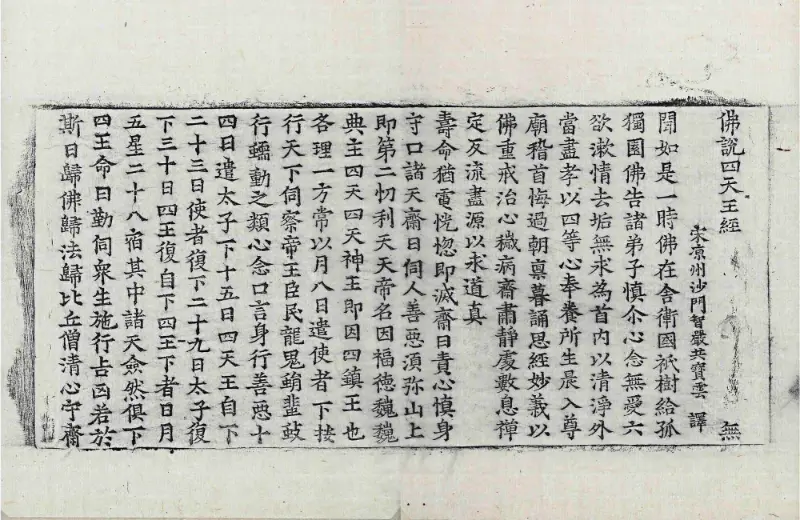 佛說四天王經 無
宋涼州沙門智嚴共寶雲 譯
聞如是一時佛在舍衛國祇樹給孤
獨園佛告諸弟子慎尒心念無愛六
欲漱情去垢無求為首內以清淨外
當盡孝以四等心奉養所生晨入尊
廟稽首悔過朝稟暮誦思經妙義以
佛重戒治心穢病齋肅靜處數息禪
定反流盡源以求道真
壽命猶電恍惚即滅齋日責心慎身
守口諸天齋日伺人善惡須弥山上
即第二忉利天天帝名因福德巍巍
典主四天四天神王即因四鎮王也
各理一方常以月八日遣使者下按
行天下伺察帝王臣民龍鬼蜎蜚蚑
行蠕動之類心念口言身行善惡十
四日遣太子下十五日四天王自下
二十三日使者復下二十九日太子復
下三十日四王復自下四王下者日月
五星二十八宿其中諸天僉然俱下
四王命曰勤伺眾生施行吉凶若於
斯日歸佛歸法歸比丘僧清心守齋